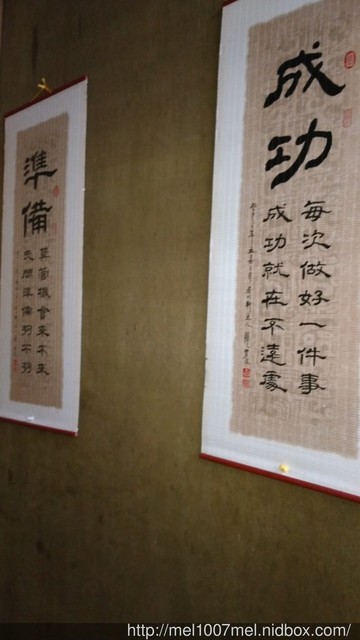 成功
每次做好一件事
成功就在不遠處
準備
莫管機會來不來
先問準備夠不夠
http://mel1007mel.nidbox.com/